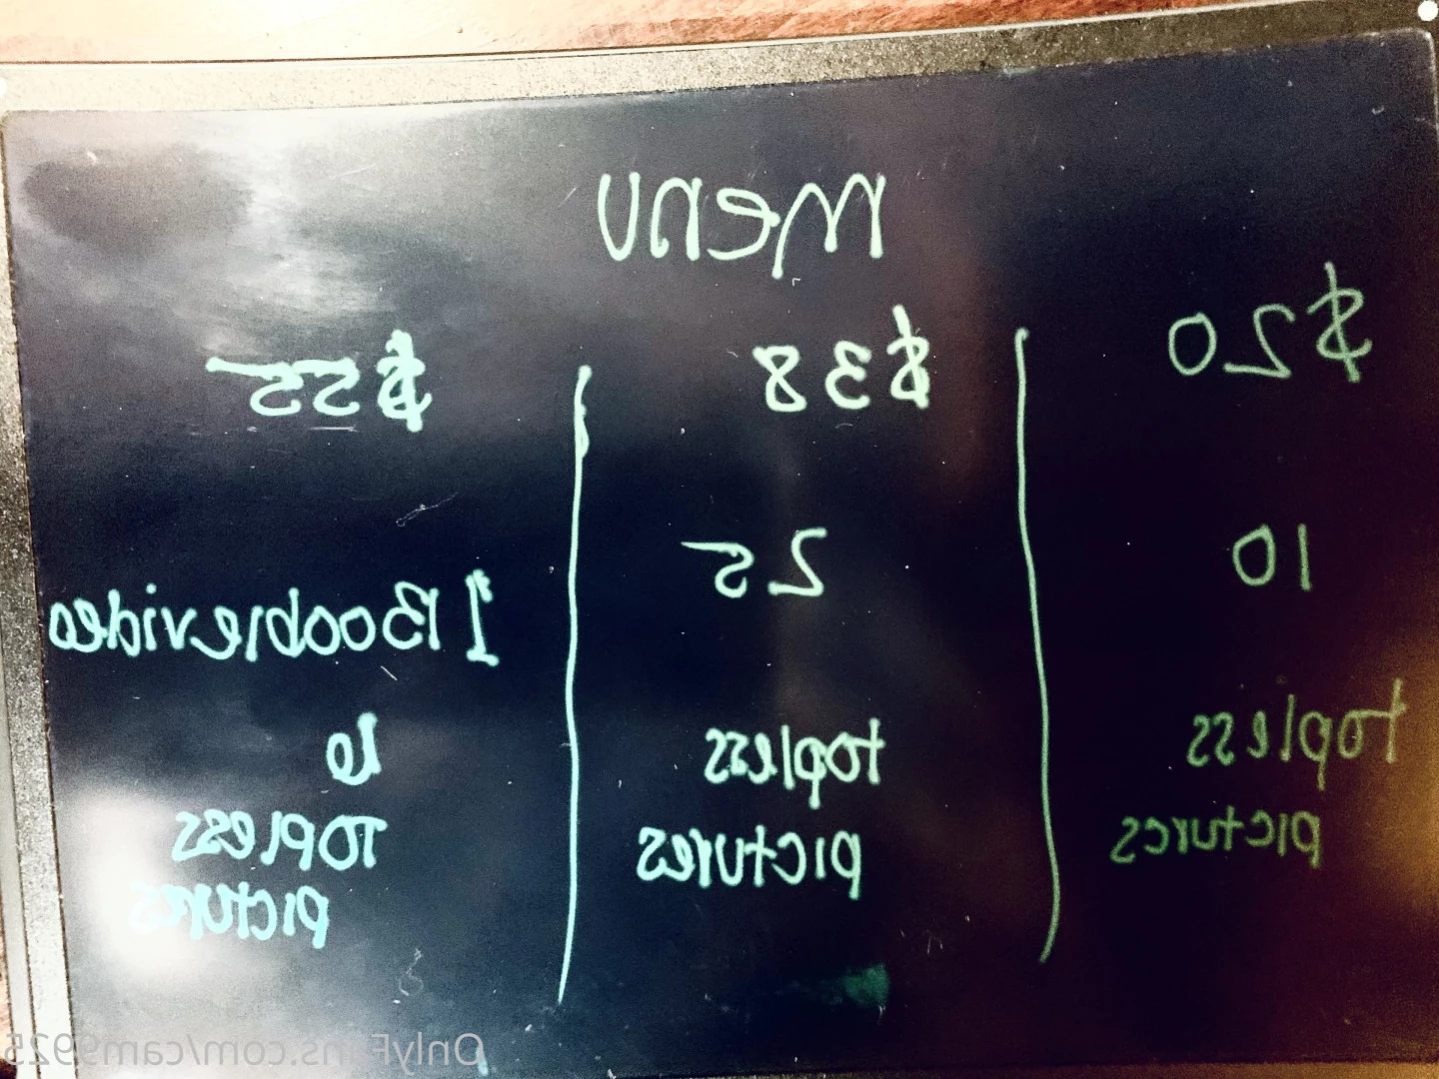 menu
$20
10
topless
pictures
$38
25
topless
pictures
$55
1 Boobie video
6
TOPLESS
pictures
OnlyFans.com/cam9925